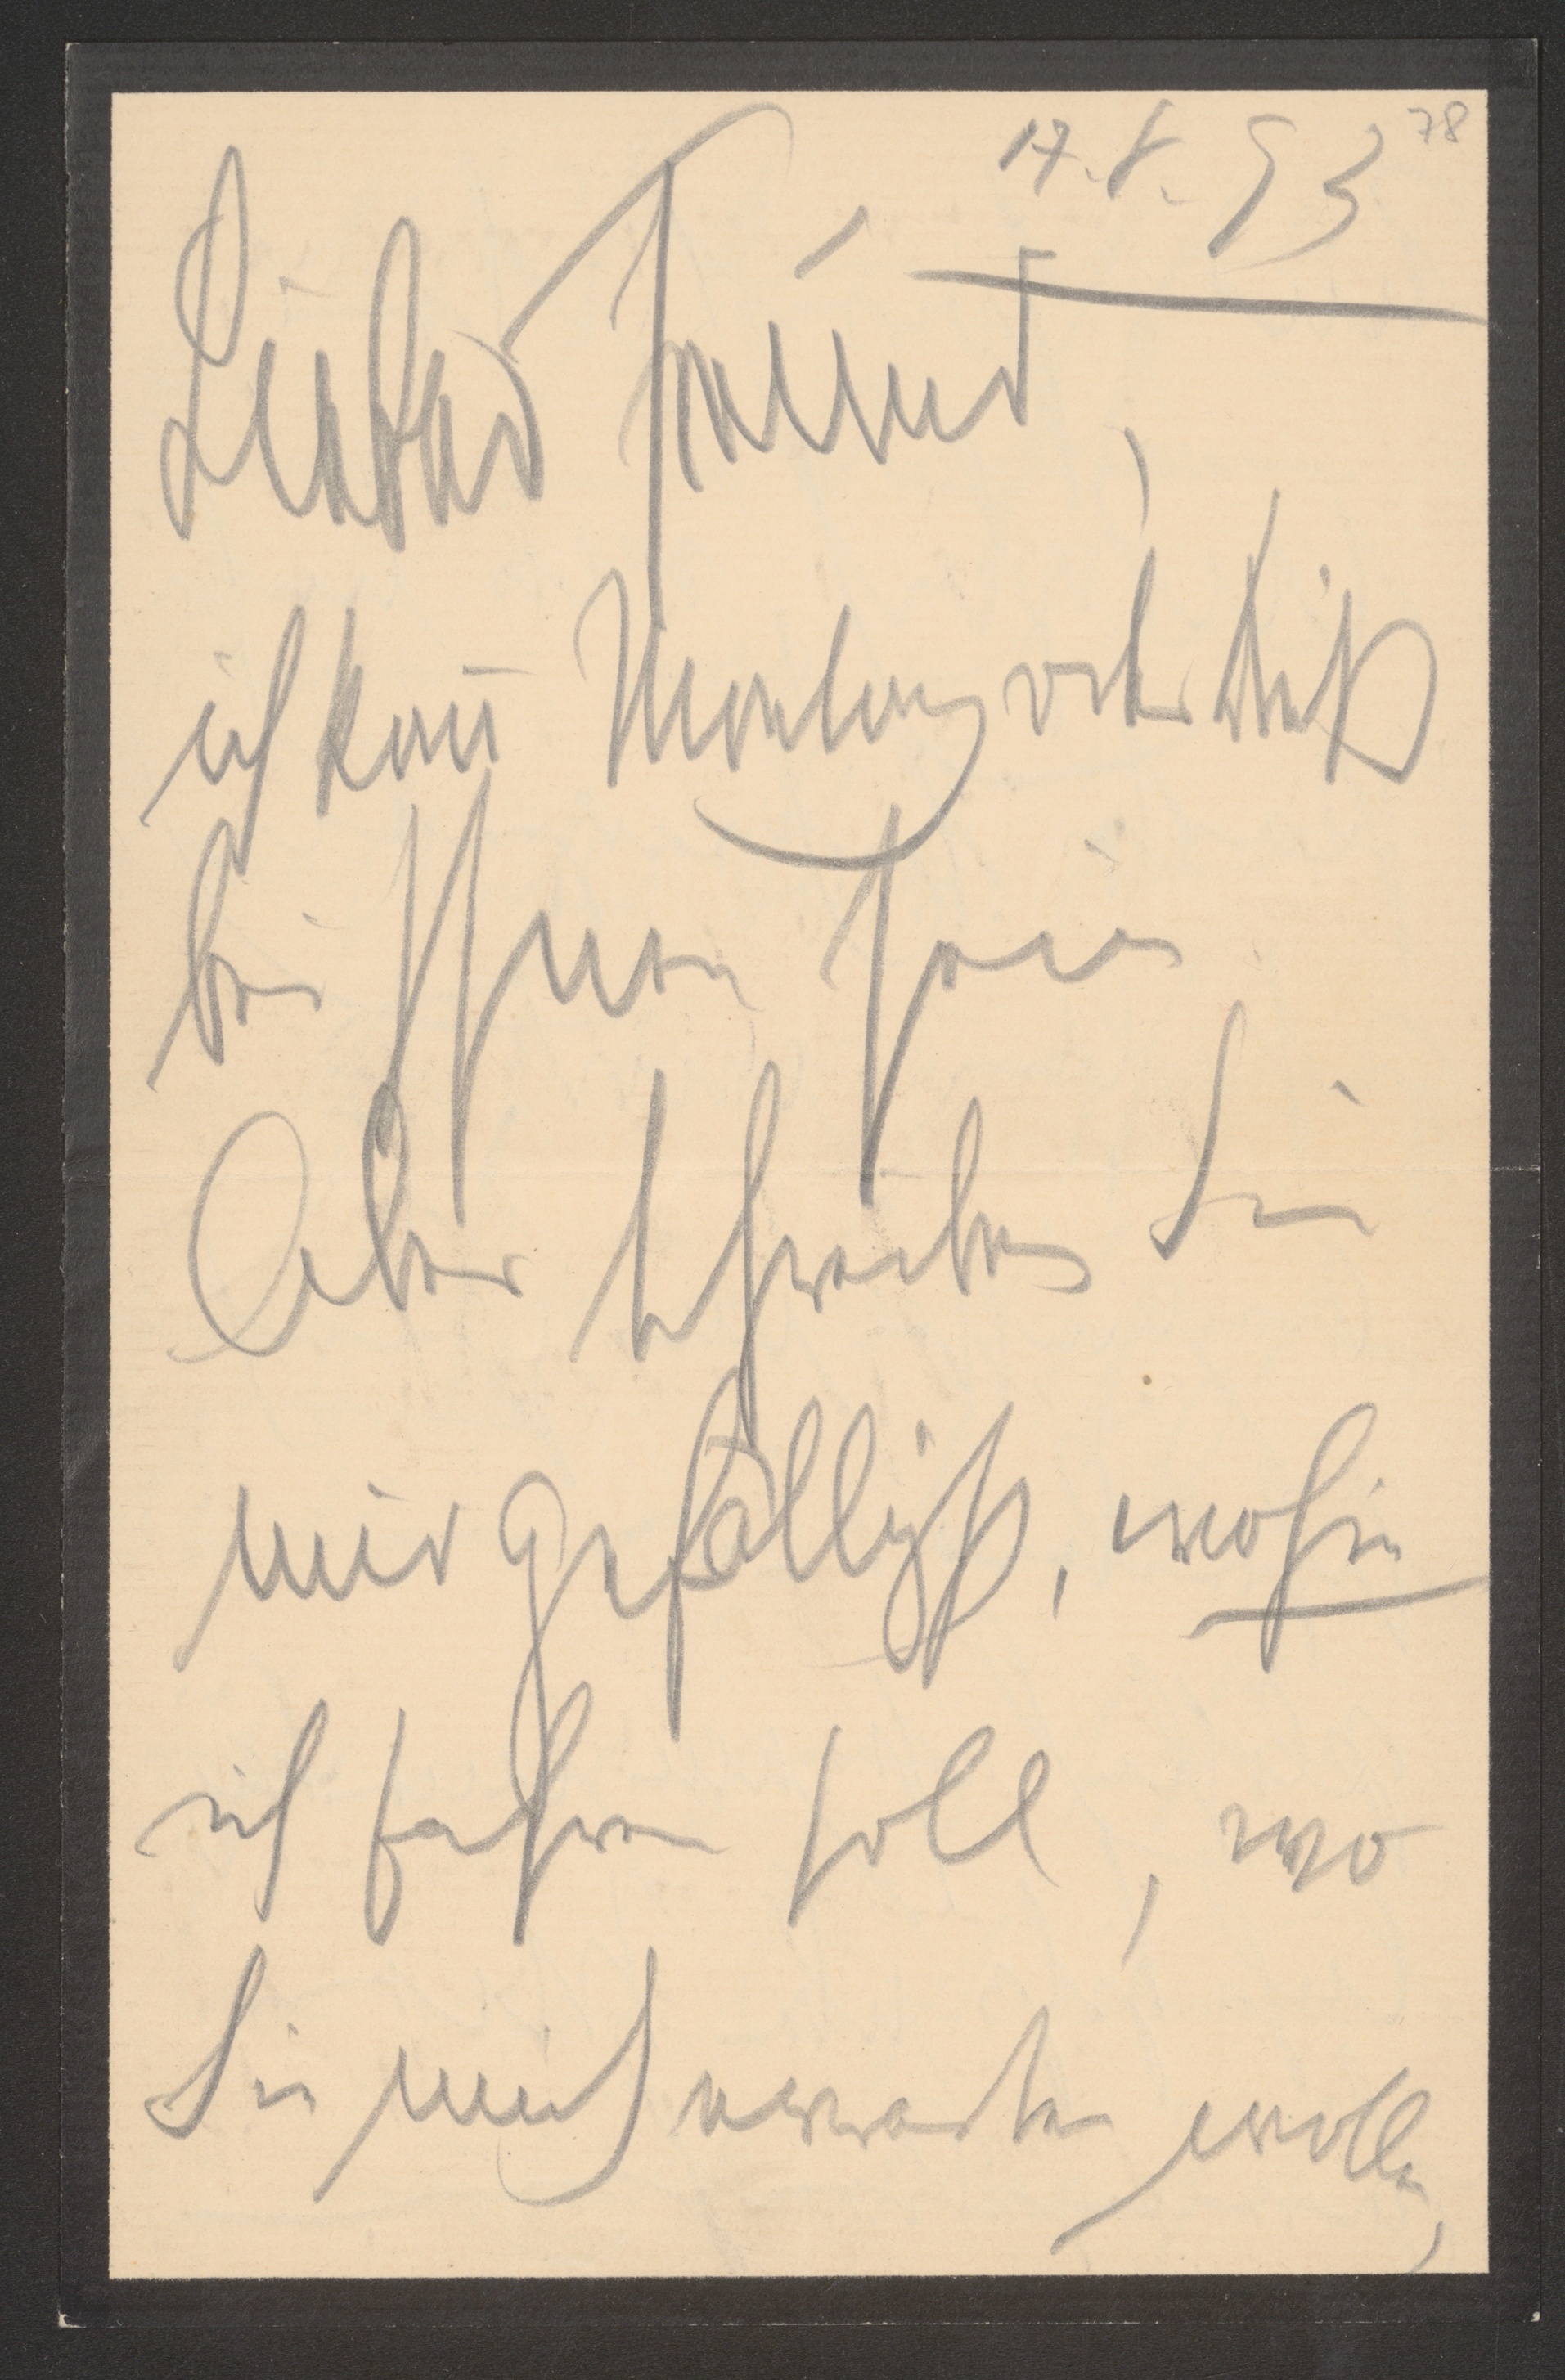 17. 8. 93
78
Lieber Freund,
ich kann Montag oder Dinst
bei Ihnen sein.
Aber schreiben Sie
mir gefälligst, wohin
ich fahren soll, wo
Sie mich erwarten wollen,